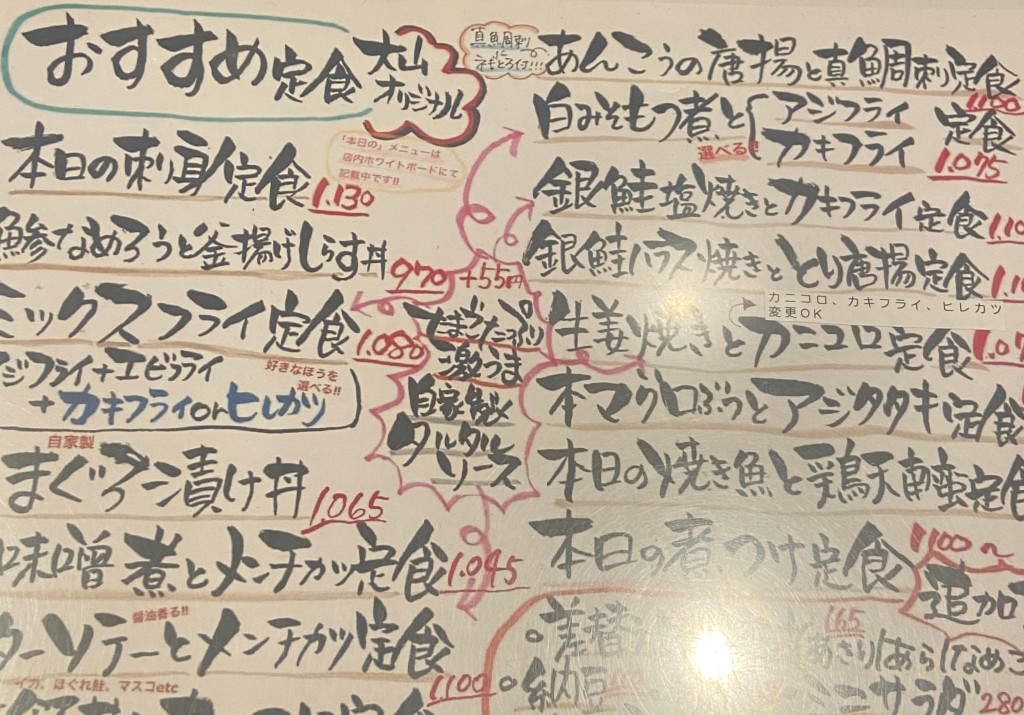 おすすめ定食
大山
オリジナル
本日の刺身定食 1.130
「本日の」メニューは
店内ホワイトボードにて
記載中です!!
鯵なめろうと釜揚げしらす丼 970
ミックスフライ定食 1.080
ジフライ+エビフライ
+カキフライorヒレカツ
好きなほうを
選べる!!
自家製
まぐろ漬け丼 1.065
味噌煮とメンチカツ定食 1.045
醤油香る!!
ターソテーとメンチカツ定食 1100
イカ、ほぐれ鮭、マスコetc
+55円
たまごたっぷり
激うま
自家製
タルタル
ソース
真鯛刺
に
ネギとろ付!!!
あんこうの唐揚と真鯛刺定食 1.100
白みそもつ煮と アジフライ 定食
選べる!! カキフライ 1.075
銀鮭塩焼きとカキフライ定食 1.10
銀鮭ハラス焼きととり唐揚定食 1.1
カニコロ、カキフライ、ヒレカツ
変更OK
生姜焼きとカニコロ定食 1.07
本マグロぶつとアジタタキ定食
本日の焼き魚と鶏天南蛮定食
本日の煮つけ定食 1100〜
追加
差替 165
あさり あら なめこ
納豆 110
ミニサラダ 280